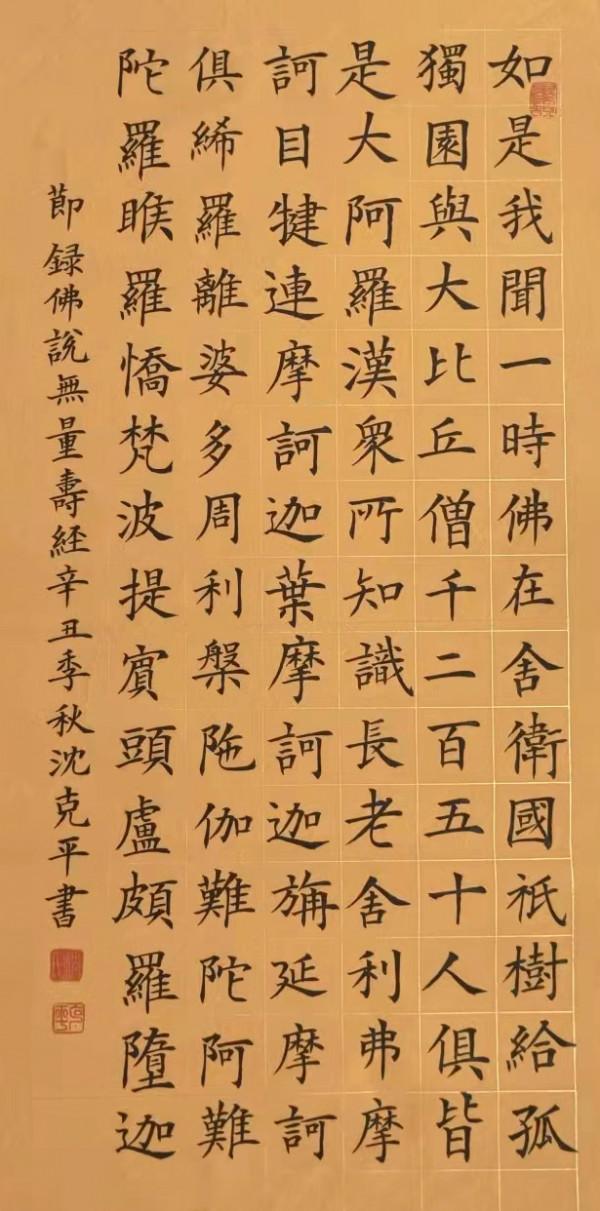 如是我聞一時佛在舍衛國祇樹給孤
獨園與大比丘僧千二百五十人俱皆
是大阿羅漢衆所知識長老舍利弗摩
訶目犍連摩訶迦葉摩訶迦旃延摩訶
俱絺羅離婆多周利槃陁伽難陀阿難
陀羅睺羅憍梵波提賓頭盧頗羅墮迦
節録佛說無量壽經辛丑季秋沈克平書